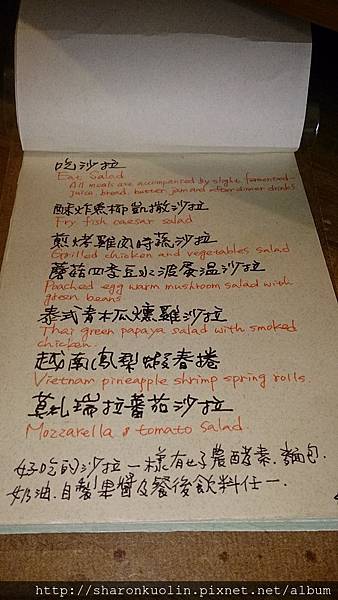 吃沙拉
Eat Salad
All meals are accompanied by slight fermented
juice, bread, butter, jam and after-dinner drinks
酥炸魚柳凱撒沙拉
Fry fish caesar salad
煎烤雞肉時蔬沙拉
Grilled chicken and vegetables salad
蘑菇四季豆水波蛋溫沙拉
Poached egg warm mushroom salad with
green beans.
泰式青木瓜燻雞沙拉
Thai green papaya salad with smoked
chicken.
越南鳳梨蝦春捲
Vietnam pineapple shrimp spring rolls.
莫札瑞拉蕃茄沙拉
Mozzarella & tomato salad
好吃的沙拉一樣有附濃酵素.麵包.
奶油.自製果醬及餐後飲料任一.
http://sharonkuolin.pixnet.net/album